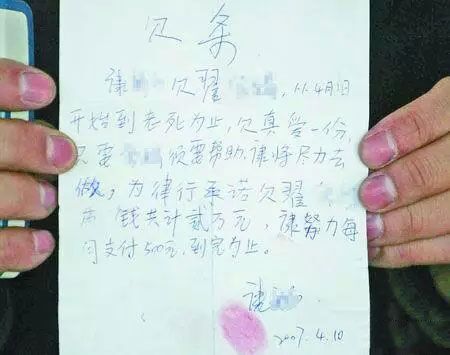 欠条
谏 欠翟 ，从4月1日
开始到老死为止，欠真爱一份，
只需 须要帮助，谏将尽力去
做，为律行承诺欠翟
钱共计贰万元，谏努力每
月支付500元，到完为止。
谏
2007.4.10